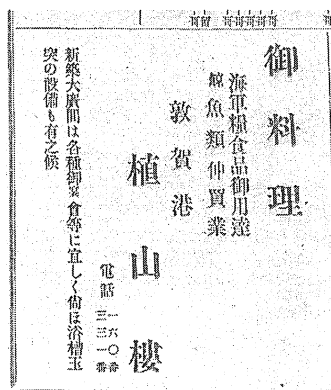 御料理
海軍糧食品御用達
鯨魚類仲買業
敦賀港
植山樓
電話 一六〇番
三三一番
新築大廣間は各種御宴會等に宜しく尙ほ浴槽玉
突の設備も有之候